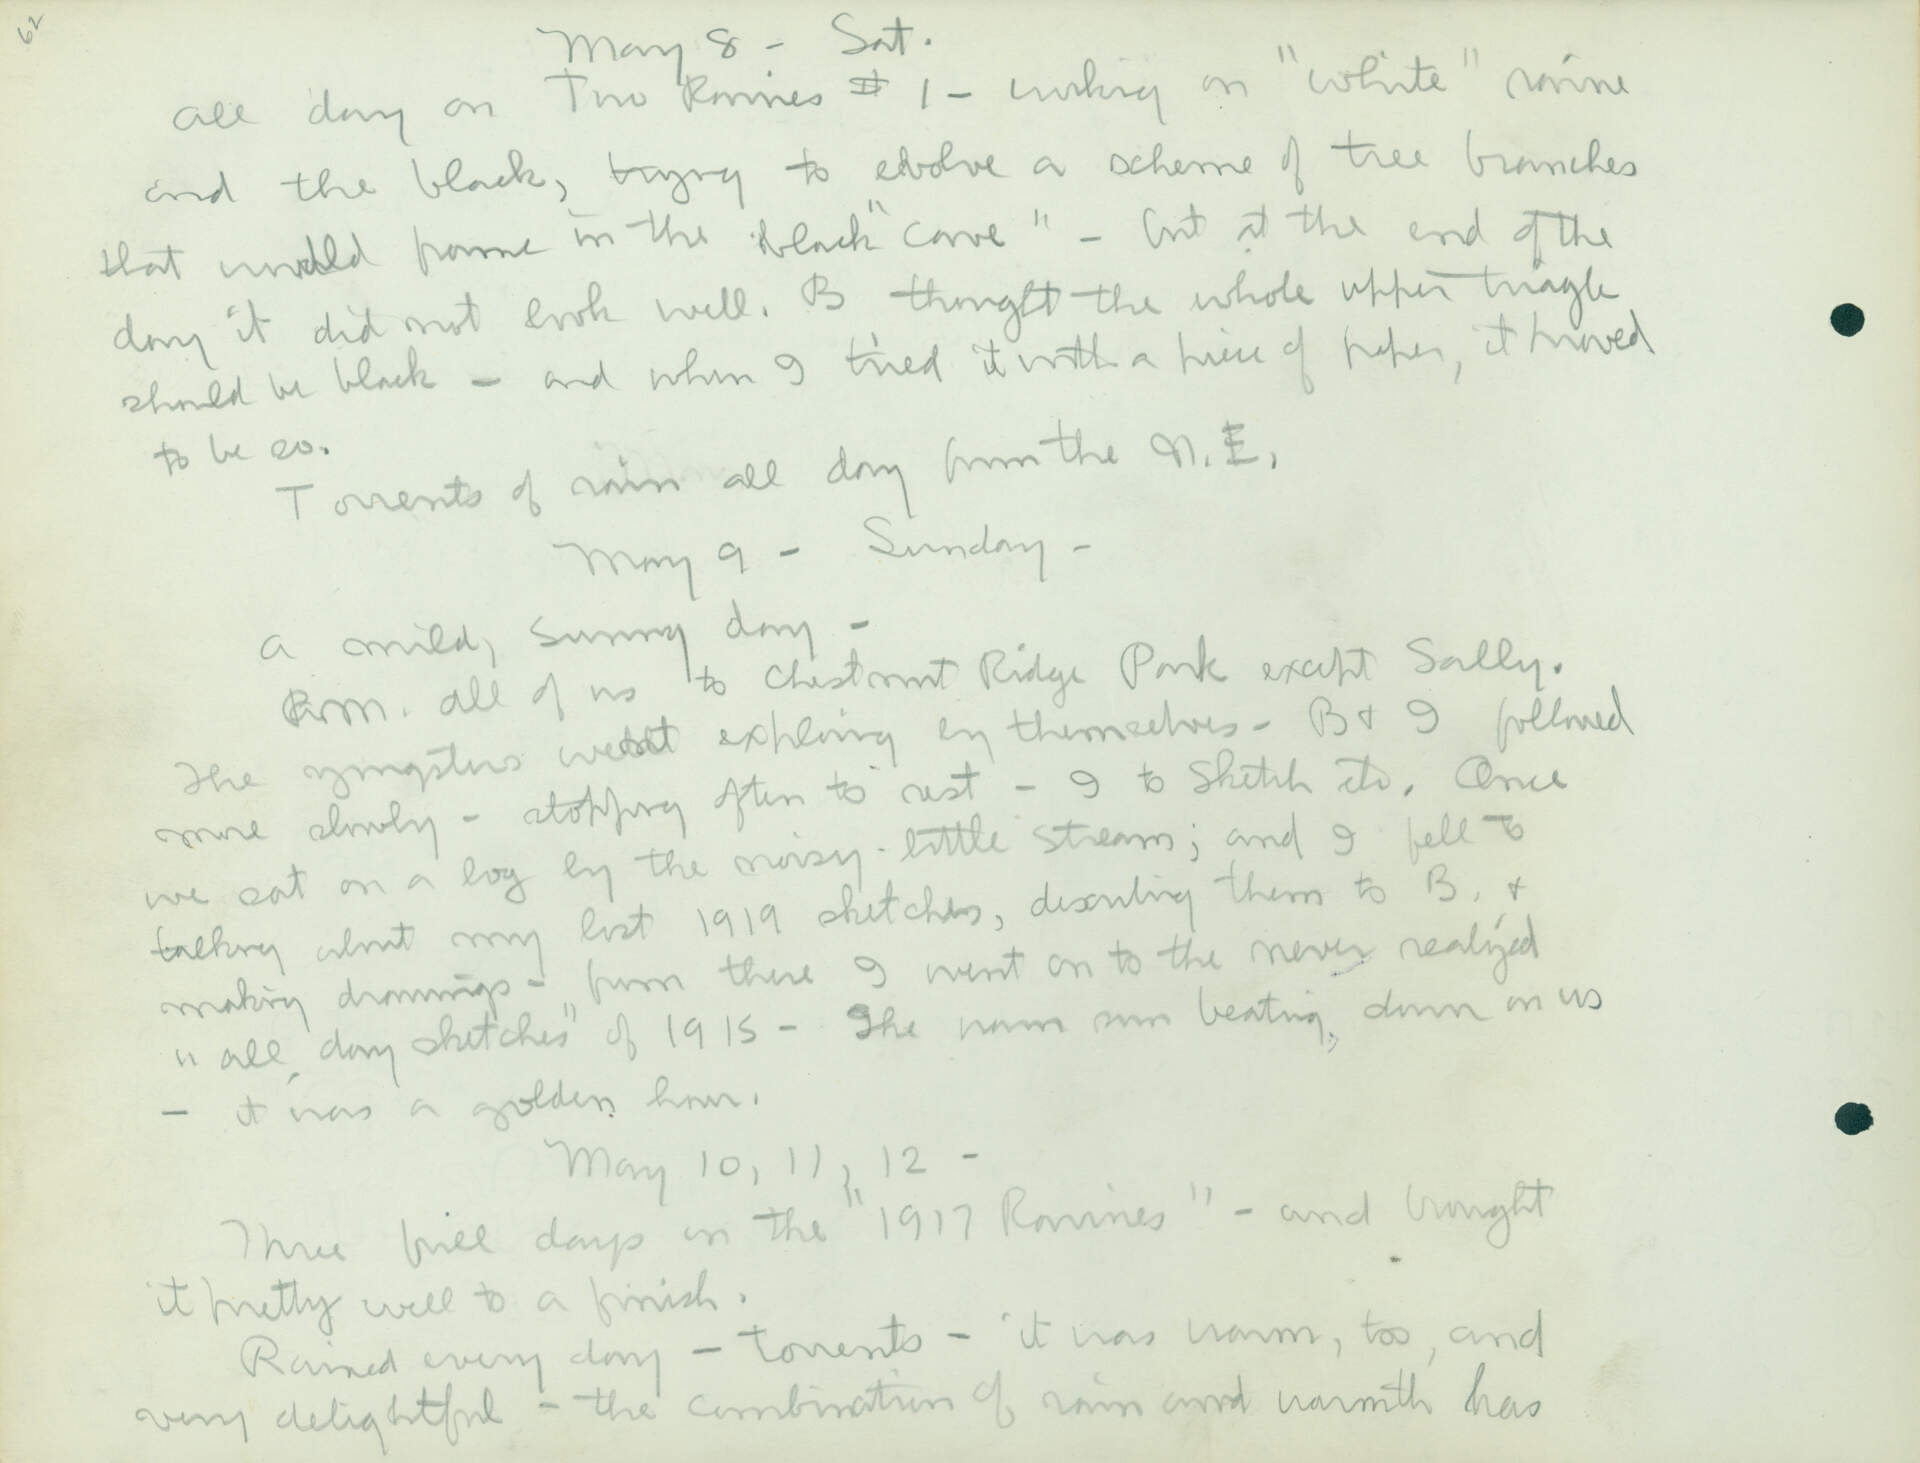 62
May 8 – Sat.
All day on Two Ravines # 1 – working on "white" ravine
and the black, trying to evolve a scheme of tree branches
that would frame in the black "cave" – but at the end of the
day it did not look well. B thought the whole upper triagle
should be black – and when I tried it with a piece of paper, it proved
to be so.
Torrents of rain all day from the N.E.
May 9 – Sunday –
A mild, sunny day –
P.M. all of us to Chestnut Ridge Park except Sally.
The youngsters went exploring by themselves – B & I followed
more slowly – stopping often to rest – I to sketch etc. Once
we sat on a log by the noisy little stream; and I fell to
talking about my lost 1919 sketches, describing them to B. &
making drawings – from there I went on to the never realized
"all day sketches" of 1915 – The warm sun beating, down on us
– it was a golden hour.
May 10, 11, 12 –
Three full days on the "1917 Ravines" – and brought
it pretty well to a finish.
Rained every day – torrents – it was warm, too, and
very delightful – the combination of rain and warmth has